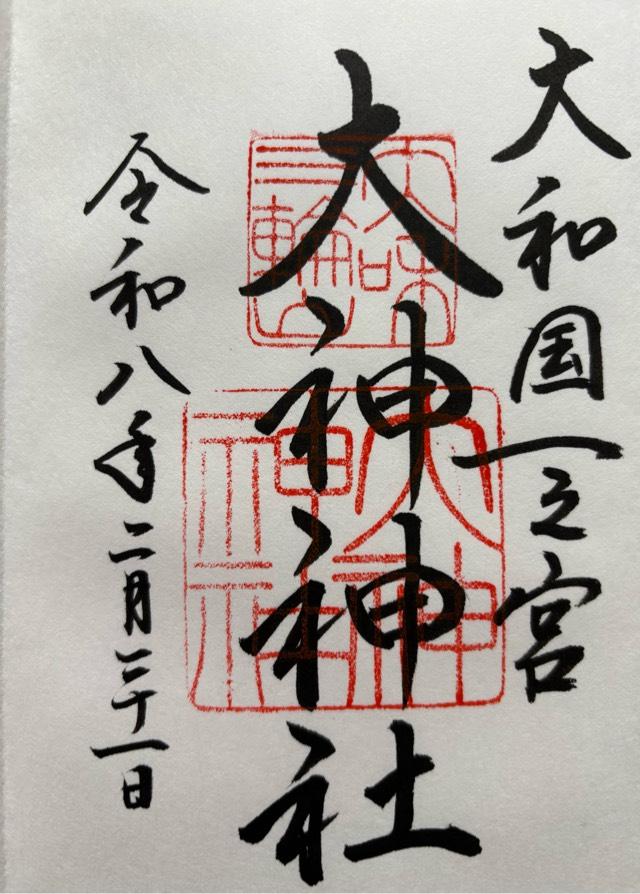 大和国一之宮
大神神社
令和八年二月二十一日
三輪山
大神
神社